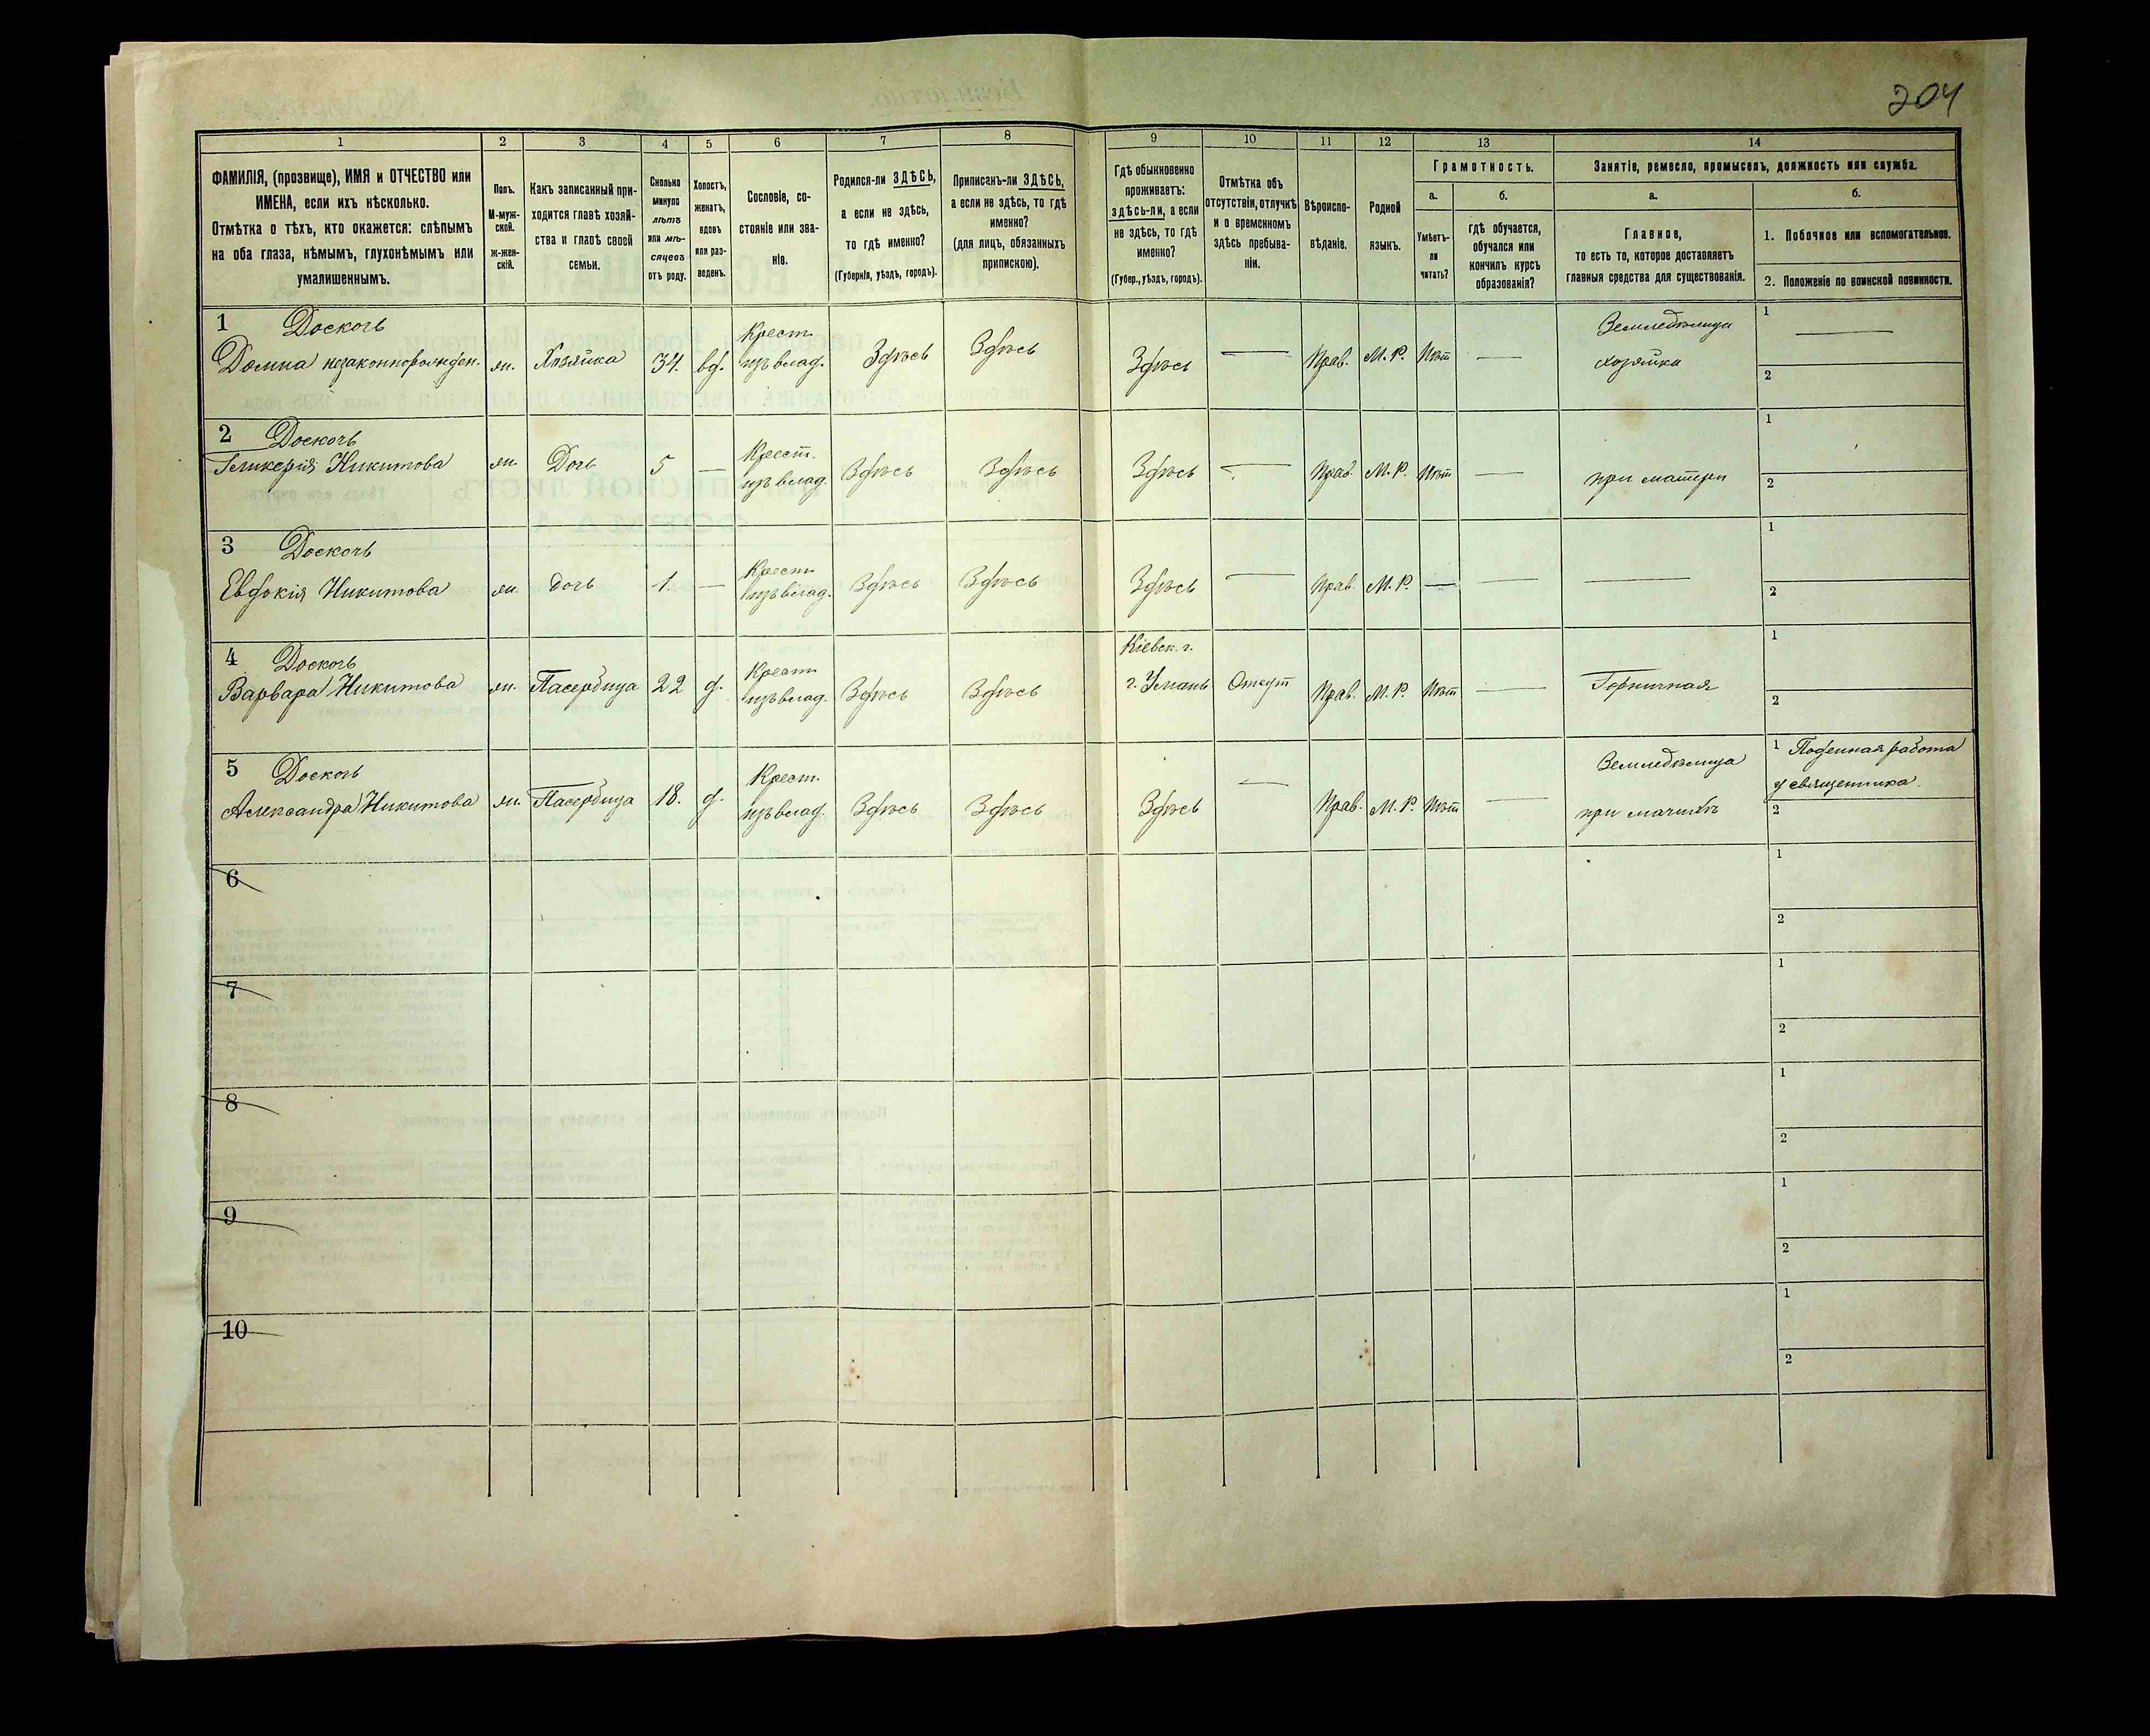 204
1
ФАМИЛІЯ, (прозвище), ИМЯ и ОТЧЕСТВО или
ИМЕНА, если ихъ нѣсколько.
Отмѣтка о тѣхъ, кто окажется: слѣпымъ
на оба глаза, нѣмымъ, глухонѣмымъ или
умалишеннымъ.
2
Полъ.
М-муж-
ской.
ж-жен-
скій.
3
Какъ записанный при-
ходится главѣ хозяй-
ства и главѣ своей
семьи.
4
Сколько
минуло
лѣтъ
или мѣ-
сяцевъ
отъ роду.
5
Холостъ,
женатъ,
вдовъ
или раз-
веденъ.
6
Сословіе, со-
стояніе или зва-
ніе.
7
Родился-ли ЗДѢСЬ,
а если не здѣсь,
то гдѣ именно?
(Губернія, уѣздъ, городъ).
8
Приписанъ-ли ЗДѢСЬ,
а если не здѣсь, то гдѣ
именно?
(для лицъ, обязанныхъ
припискою).
9
Гдѣ обыкновенно
проживаетъ:
здѣсь-ли, а если
не здѣсь, то гдѣ
именно?
(Губер., уѣздъ, городъ).
10
Отмѣтка объ
отсутствіи, отлучкѣ
и о временномъ
здѣсь пребыва-
ніи.
11
Вѣроиспо-
вѣданіе.
12
Родной
языкъ.
13
Грамотность.
а.
Умѣетъ-
ли
читать?
б.
гдѣ обучается,
обучался или
кончилъ курсъ
образованія?
14
Занятіе, ремесло, промыселъ, должность или служба.
а.
Главное,
то есть то, которое доставляетъ
главныя средства для существованія.
б.
1. Побочное или вспомогательное.
2. Положеніе по воинской повинности.
1 Доскочь
Домна незаконнорожден. ж. Хозяйка 34. вд. Крест. изъ влад. Здѣсь Здѣсь Здѣсь — Прав. М. Р. Нѣт — Земледѣлица хозяйка 1 — 2
2 Доскочь
Гликерія Никитова ж. Дочь 5 — Крест. изъ влад. Здѣсь Здѣсь Здѣсь — Прав. М. Р. Нѣт — при матери 1 2
3 Доскочь
Евдокія Никитова ж. дочь 1. — Крест. изъ влад. Здѣсь Здѣсь Здѣсь — Прав. М. Р. — — — 1 2
4 Доскочь
Варвара Никитова ж. Пасербица 22 д. Крест. изъ влад. Здѣсь Здѣсь Кіевск. г. г. Умань Отсут Прав. М. Р. Нѣт — Горничная 1 2
5 Доскочь
Александра Никитова ж. Пасербица 18. д. Крест. изъ влад. Здѣсь Здѣсь Здѣсь — Прав. М. Р. Нѣт — Земледѣлица при мачихѣ 1 Поденная работа у священника. 2
6 1 2
7 1 2
8 1 2
9 1 2
10 1 2